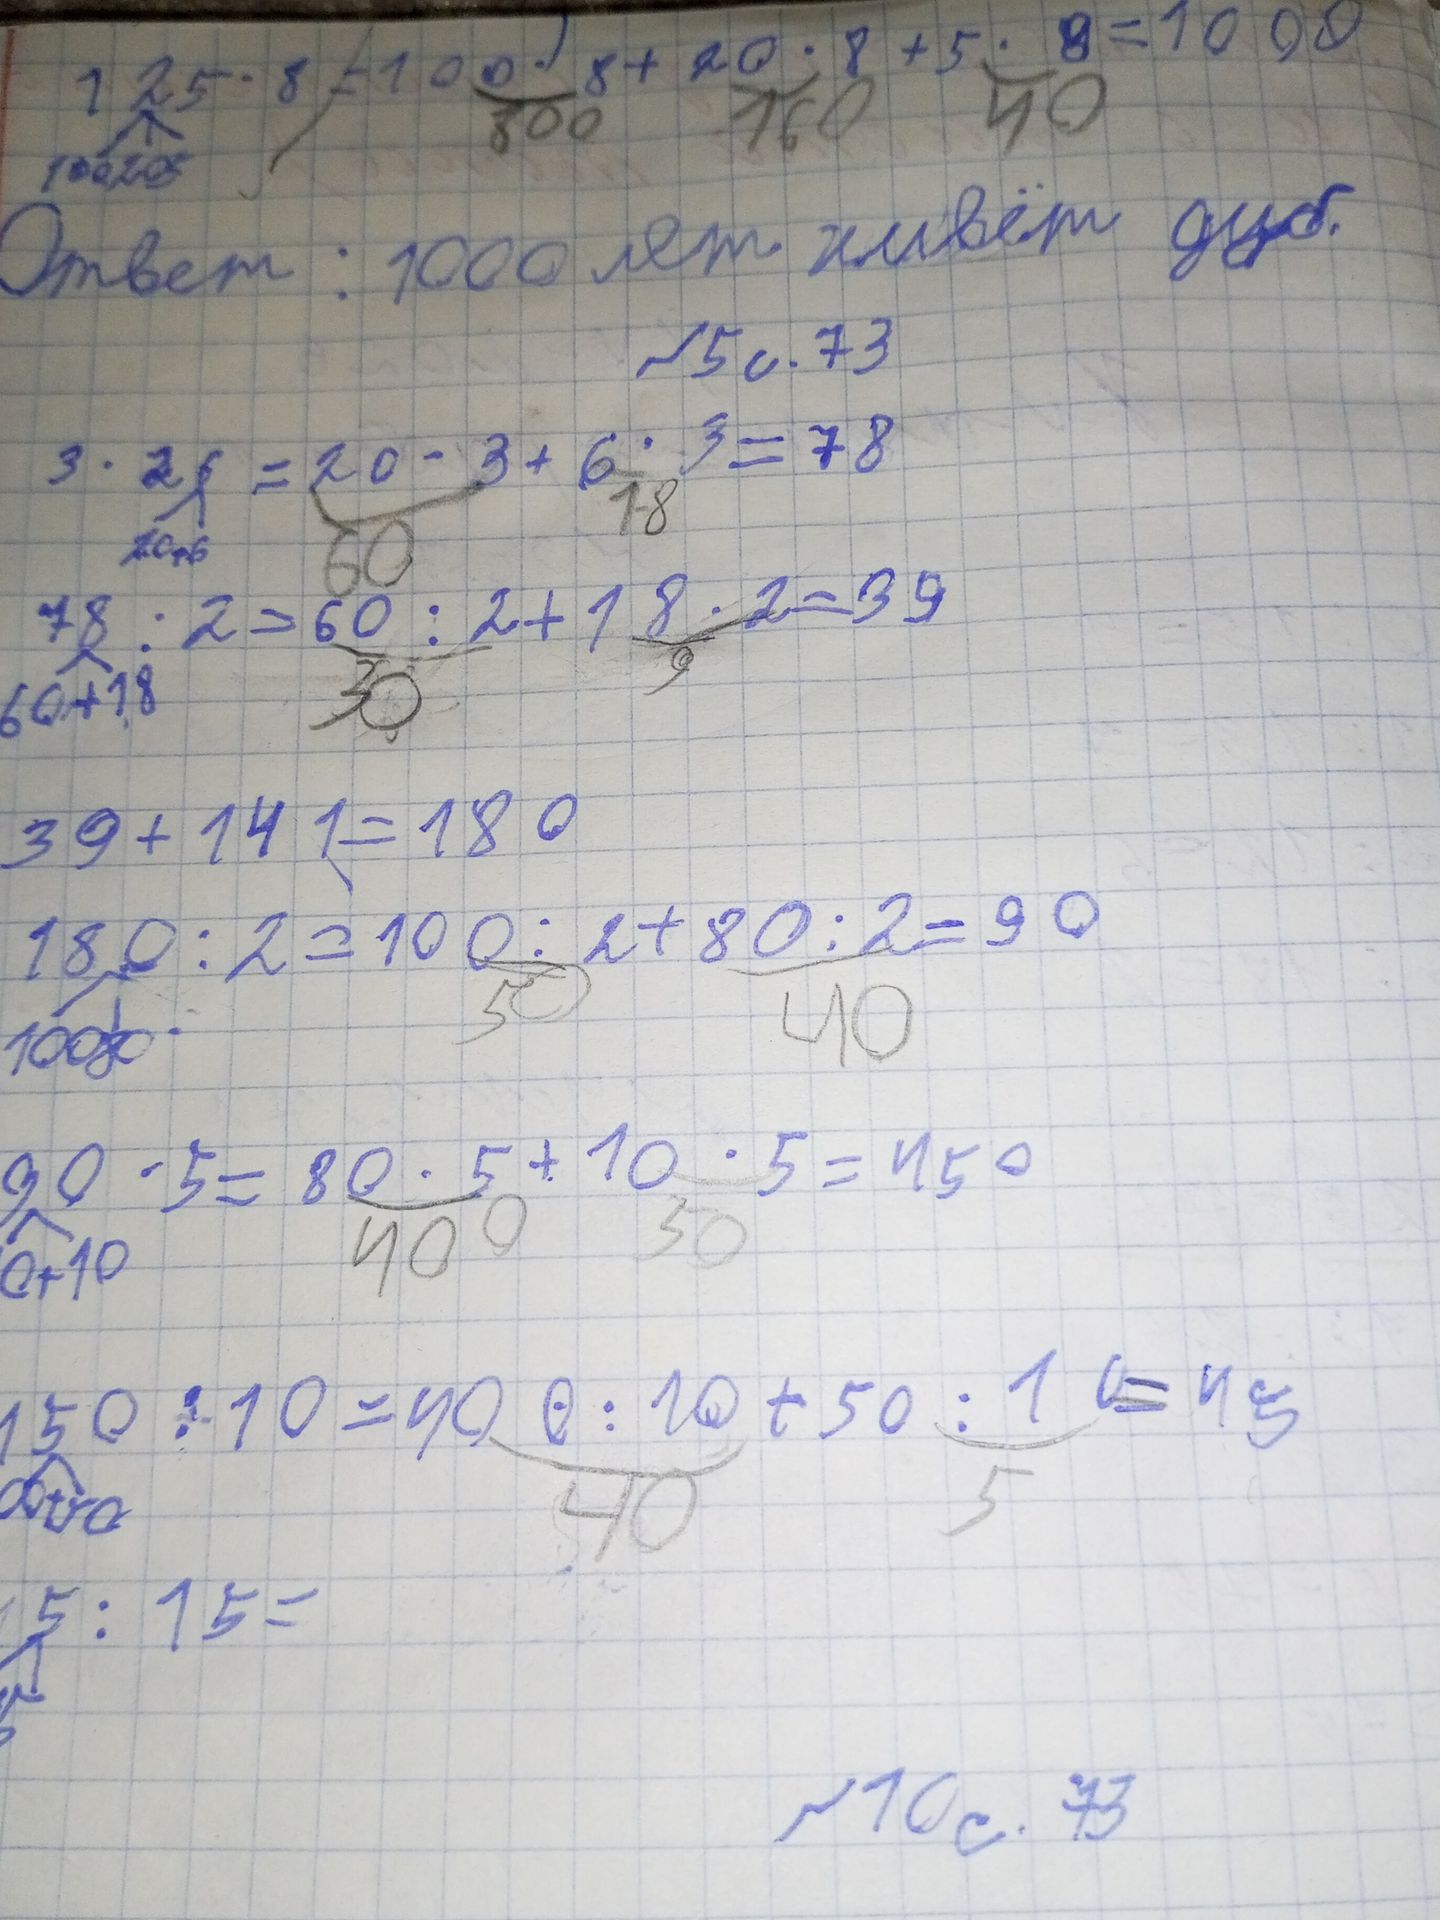 125 · 8 = 100 · 8 + 20 · 8 + 5 · 8 = 1000
800 160 40
100 20 5
Ответ: 1000 лет живёт дуб.
№5 с. 73
3 · 26 = 20 · 3 + 6 · 3 = 78
20+6 60 18
78 : 2 = 60 : 2 + 18 · 2 = 39
60+18 30 9
39 + 141 = 180
180 : 2 = 100 : 2 + 80 : 2 = 90
100 80 50 40
90 · 5 = 80 · 5 + 10 · 5 = 450
0+10 400 50
450 : 10 = 400 : 10 + 50 : 10 = 45
00+50 40 5
45 : 15 =
№10 с. 73